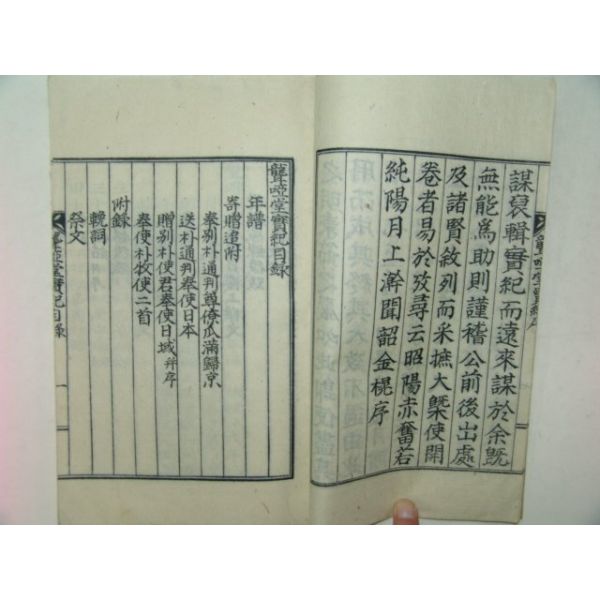 謀裒輯實紀而遠來謀於余旣
無能爲助則謹稽公前後出處
及諸賢敘列而采摭大槩使開
卷者易於攷尋云昭陽赤奮若
純陽月上澣聞韶金榥序
聾啞堂實紀目錄
年譜
寄贈追附
奉別朴通判尊僚瓜滿歸京
送朴通判奉使日本
贈別朴使君奉使日域幷序
奉使朴牧使二首
附錄
輓詞
祭文
聾啞堂實紀目錄
一